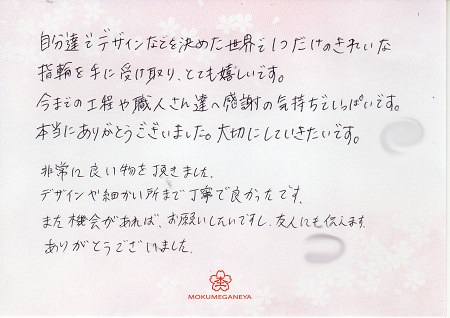 自分達でデザインなどを決めた世界で1つだけのきれいな
指輪を手に受け取り、とても嬉しいです。
今までの工程や職人さん達へ感謝の気持ちでいっぱいです。
本当にありがとうございました。大切にしていきたいです。
非常に良い物を頂きました。
デザインや細かい所まで丁寧で良かったです。
また機会があれば、お願いしたいですし、友人にも伝えます。
ありがとうございました。
MOKUMEGANEYA